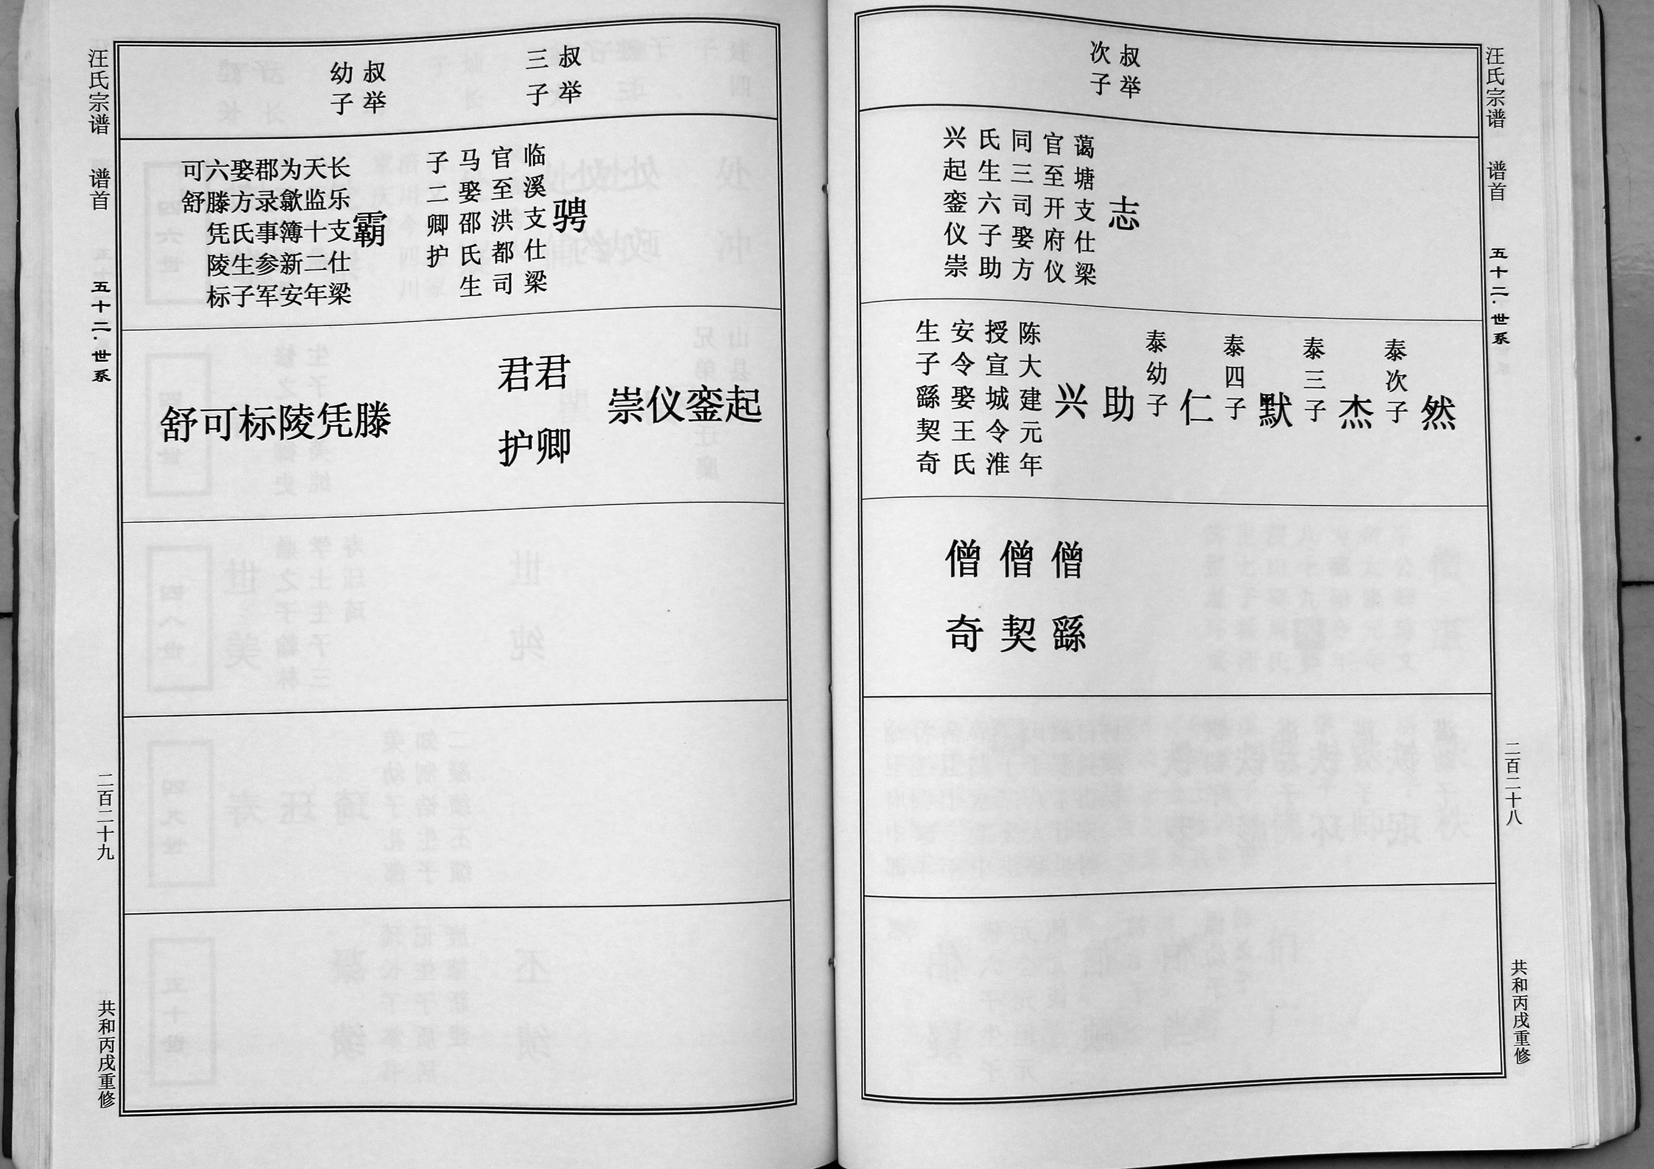 汪氏宗谱
谱首
五十二·世系
二百二十八
共和丙戌重修
叔举
次子
志
蔼塘支仕梁
官至开府仪
同三司娶方
氏生六子助
兴起銮仪崇
然
泰次子
杰
泰三子
默
泰四子
仁
泰幼子
助
兴
陈大建元年
授宣城令淮
安令娶王氏
生子繇契奇
僧繇
僧契
僧奇
叔举
三子
叔举
幼子
骋
临溪支仕梁
官至洪都司
马娶邵氏生
子二卿护
霸
长乐支仕梁
天监十二年
为歙簿新安
郡录事参军
娶方氏生子
六滕凭陵标
可舒
起
銮
仪
崇
君卿
君护
滕
凭
陵
标
可
舒
汪氏宗谱
谱首
五十二·世系
二百二十九
共和丙戌重修